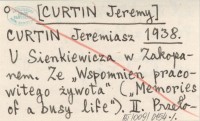 [CURTIN Jeremy]
CURTIN Jeremiasz 1938.
U Sienkiewicza w Zakopa-
nem. Ze „Wspomnień praco-
witego żywota" („Memories
of a busy life"). II. Przeło-